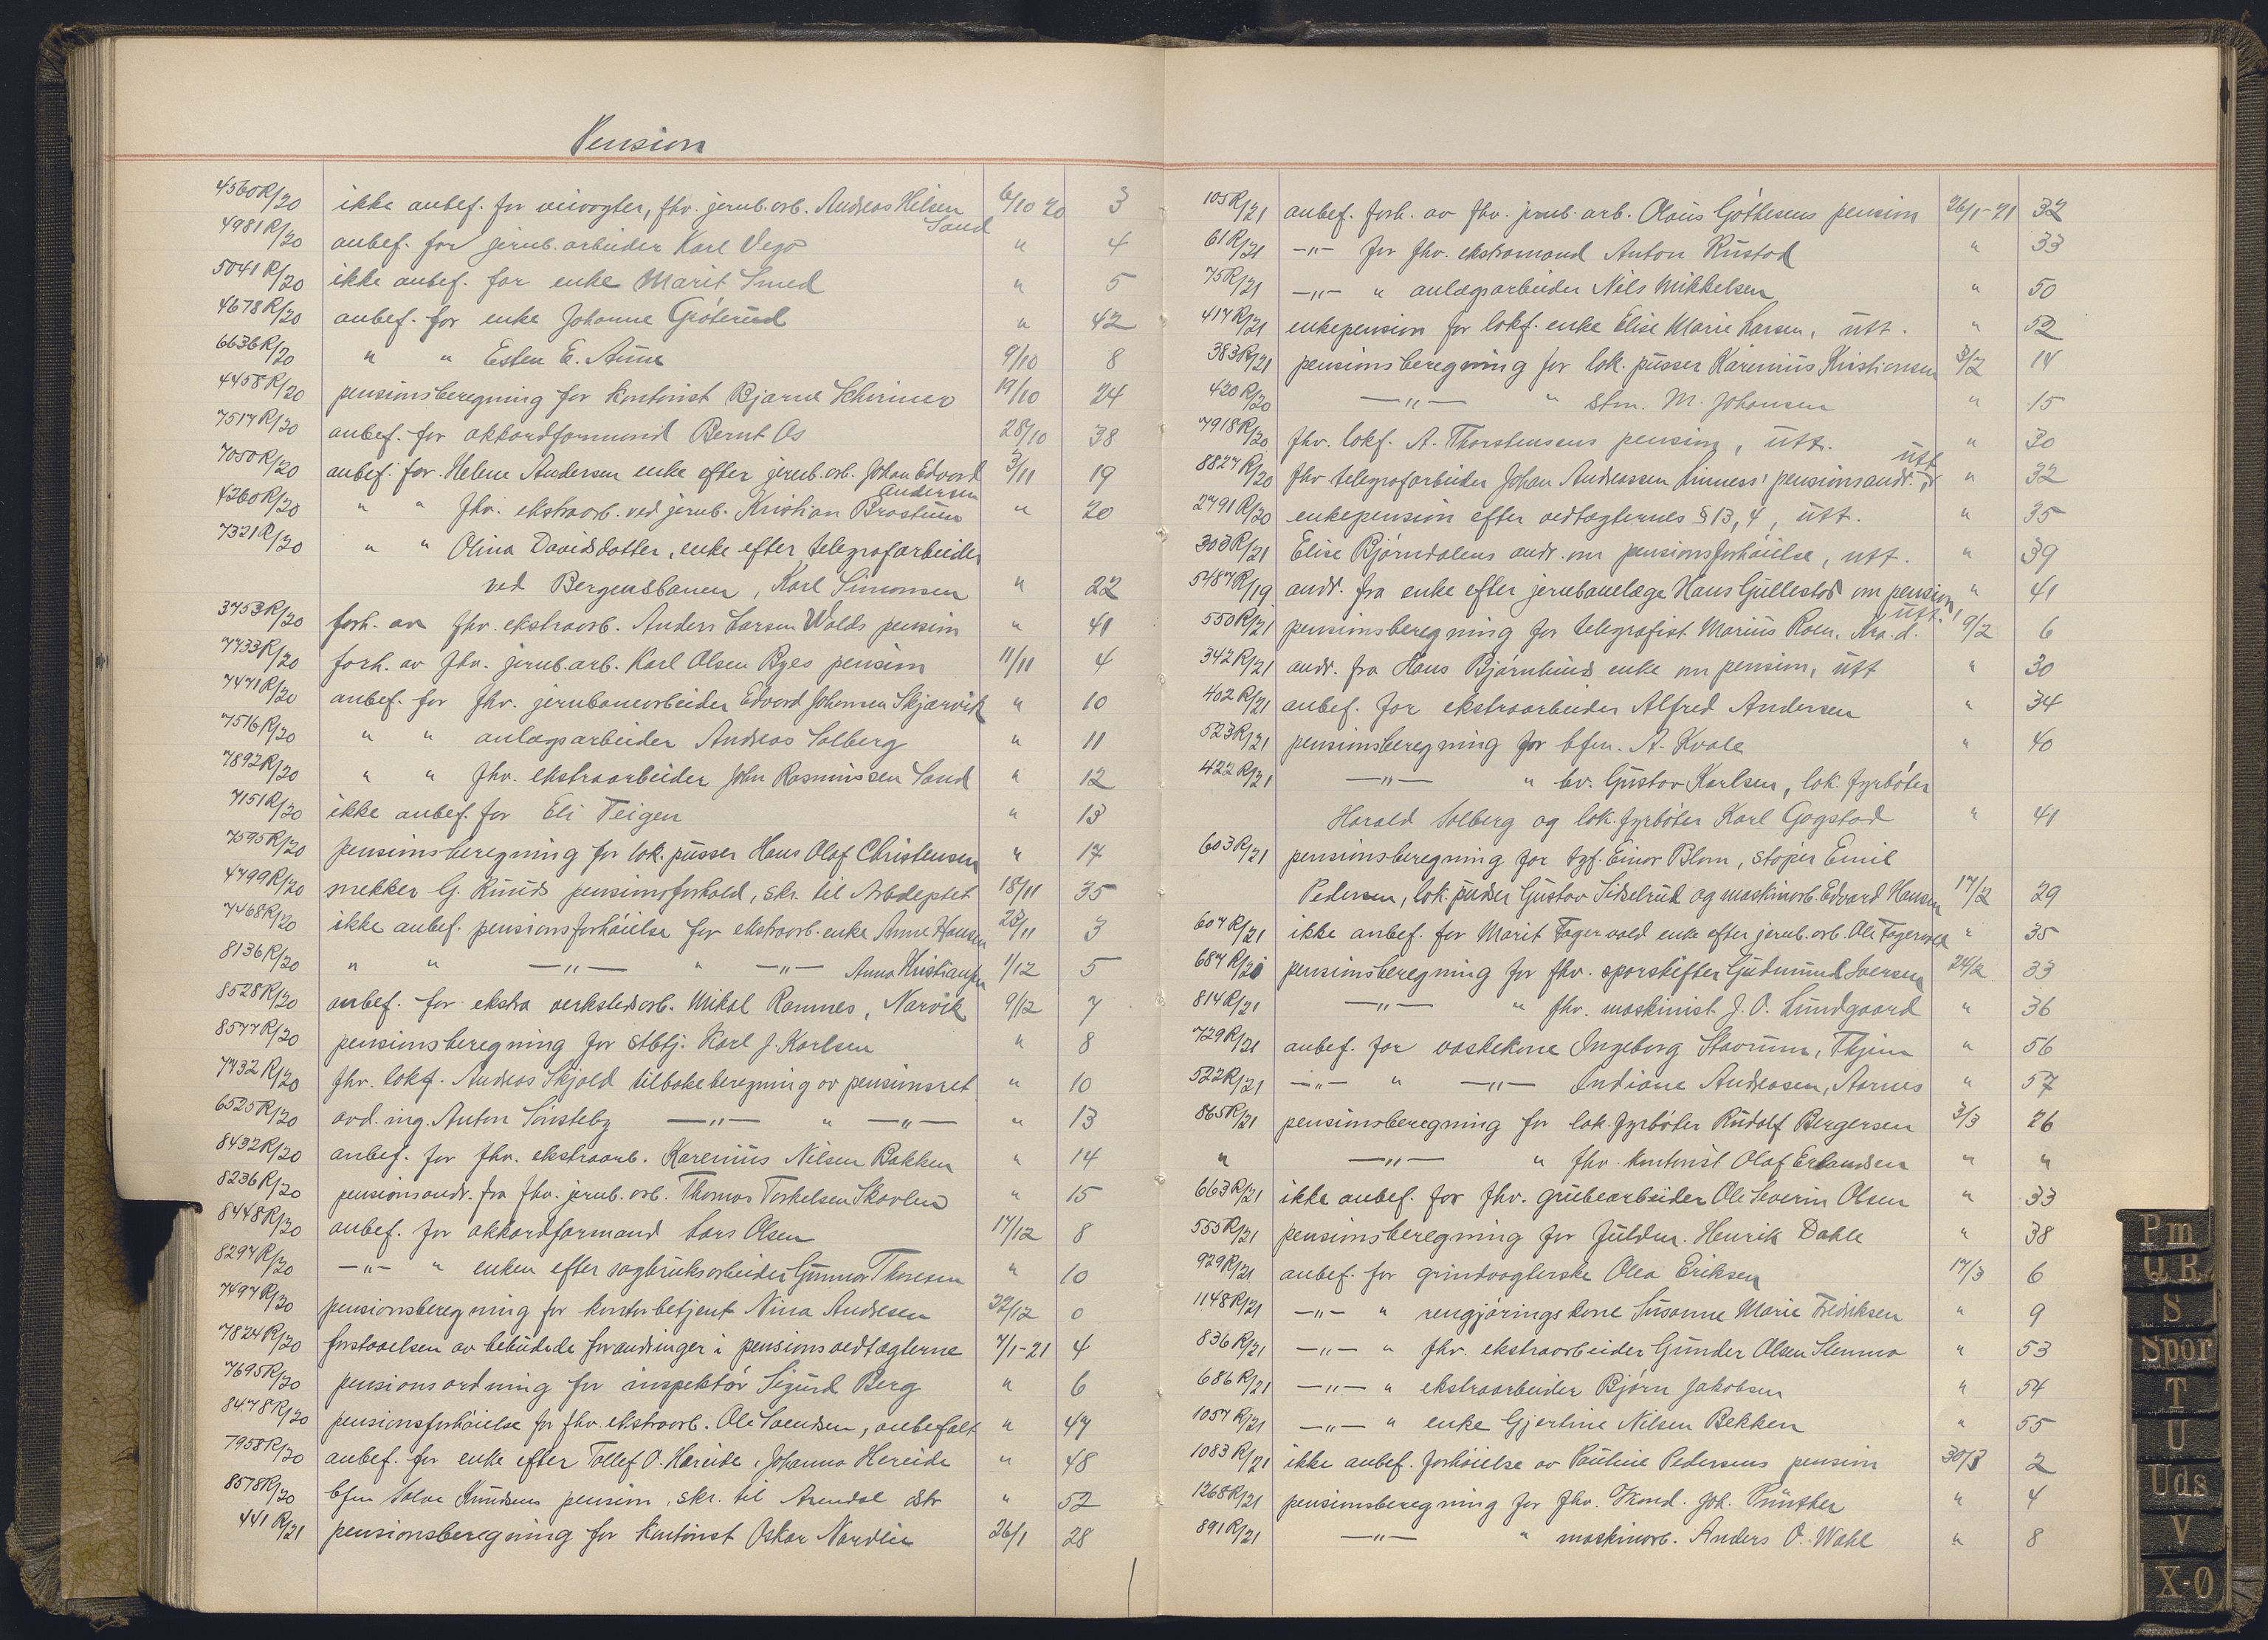 Pension
4560R/20 ikke anbef. for veivogter, fhv. jernb.arb. Andreas Nilsen Sand 6/10 20 3
4981R/20 anbef. for jernb.arbeider Karl Vego " 4
5041R/20 ikke anbef. for enke Marit Smed " 5
4678R/20 anbef. for enke Johanne Gróterud " 42
6636R/20 " " Esten E. Aune 9/10 8
4458R/20 pensionsberegning for kontorist Bjarne Schirmer 19/10 24
7517R/20 anbef. for akkordformand Bernt Os 28/10 38
7050R/20 anbef. for Helene Andersen enke efter jernb.arb. Johan Edvard Andersen 3/11 19
4260R/20 " " fhv. ekstraarb. ved jernb. Kristian Brastuen " 20
7321R/20 " " Olina Davidsdatter, enke efter telegrafarbeider
ved Bergensbanen, Karl Simonsen " 22
3753R/20 forh. av fhv. ekstraarb. Anders Larsen Walds pension " 41
7733R/20 forh. av fhv. jernb.arb. Karl Olsen Ryes pension 11/11 4
7471R/20 anbef. for fhv. jernbanearbeider Edvard Johansen Skjærvik " 10
7516R/20 " " anlægsarbeider Andreas Solberg " 11
7892R/20 " " fhv. ekstraarbeider John Rasmussen Sand " 12
7151R/20 ikke anbef. for Eli Teigen " 13
7595R/20 pensionsberegning for lok. pusser Hans Olaf Christensen " 17
4799R/20 snekker G. Ruuds pensionsforhold, skr. til Arbdeptet 18/11 35
7468R/20 ikke anbef. pensionsforhöielse for ekstraarb. enke Anne Hansen 23/11 3
8136R/20 " " —"— " —"— Anna Kristiansen 1/12 5
8528R/20 anbef. for ekstra verkstedsarb. Mikal Ramnes, Narvik 9/12 7
8577R/20 pensionsberegning for stbtj. Karl J. Karlsen " 8
7732R/20 fhv. lokf. Andreas Skjold tilbakeberegning av pensionsret " 10
6525R/20 avd. ing. Anton Sönsteby —"— " —"— " 13
8432R/20 anbef. for fhv. ekstraarb. Karenius Nilsen Bakken " 14
8236R/20 pensionsandr. fra fhv. jernb. arb. Thomas Torkelsen Skavlen " 15
8448R/20 anbef. for akkordformand Lars Olsen 17/12 8
8297R/20 —"— " enken efter sagbruksarbeider Gunnar Thoresen " 10
7497R/20 pensionsberegning for kontorbetjent Nina Andresen 22/12 0
7824R/20 forstaaelsen av bebudede forandringer i pensionsvedtægterne 7/1-21 4
7695R/20 pensionsordning for inspektör Sigurd Berg " 6
8478R/20 pensionsforhöielse for fhv. ekstraarb. Ole Svendsen, anbefalt " 47
7958R/20 anbef. for enke efter Tollef O. Hereide, Johanna Hereide " 48
8578R/20 bfm Salve Knudsens pension, skr. til Arendal dstr " 52
441R/21 pensionsberegning for kontorist Oskar Nordlie 26/1 28
105R/21 anbef. forh. av fhv. jernb. arb. Olaus Göthesens pension 26/1-21 32
61R/21 —"— for fhv. ekstramand Anton Rustad " 33
75R/21 —"— " anlægsarbeider Nils Mikkelsen " 50
417R/21 enkepension for lokf. enke Elise Marie Larsen, utt. " 52
383R/21 pensionsberegning for lok. pusser Karenius Kristiansen 3/2 14
420R/20 —"— " stm. M. Johansen " 15
7918R/20 fhv. lokf. A. Thorstensens pension, utt. " 30
8827R/20 fhv telegrafarbeider Johan Andreassen Linness' pensionsandr., utt " 32
2791R/20 enkepension efter vedtægternes § 13, 4, utt. " 35
303R/21 Elise Björndalens andr. om pensionsforhöielse, utt. " 39
5487R/19 andr. fra enke efter jernbanelæge Hans Gullestad om pension, utt. " 41
550R/21 pensionsberegning for telegrafist Marius Roen, Kra. d. 9/2 6
342R/21 andr. fra Hans Bjørnhuus enke om pension, utt " 30
402R/21 anbef. for ekstraarbeider Alfred Andersen " 34
523R/21 pensionsberegning for bfm. A. Kvale " 40
422R/21 —"— " bv. Gustav Karlsen, lok. fyrböter
Harald Solberg og lok. fyrböter Karl Gogstad " 41
603R/21 pensionsberegning for tgf. Einar Blom, støper Emil
Pedersen, lok. pudser Gustav Sidselrud og maskinarb. Edvard Hansen 17/2 29
607R/21 ikke anbef. for Marit Fagervold enke efter jernb. arb. Ole Fagervold " 35
687R/20 pensionsberegning for fhv. sporskifter Gudmund Iversen 24/2 33
814R/21 —"— " fhv. maskinist J. O. Lundgaard " 36
729R/21 anbef. for vaskekone Ingeborg Stavrum, Thjem " 56
522R/21 —"— " —"— Indiane Andreasen, Aarnes " 57
865R/21 pensionsberegning for lok. fyrböter Rudolf Bergersen 3/3 26
" —"— " fhv. kontorist Olaf Erlandsen " "
663R/21 ikke anbef. for fhv. grubearbeider Ole Severin Olsen " 33
555R/21 pensionsberegning for fuldm. Henrik Dahle " 38
929R/21 anbef. for grindvogterske Olea Eriksen 17/3 6
1148R/21 —"— " rengjöringskone Susanne Marie Fredriksen " 9
836R/21 —"— " fhv. ekstraarbeider Gunder Olsen Stenmo " 53
686R/21 —"— " ekstraarbeider Bjørn Jakobsen " 54
1057R/21 —"— " enke Gjerline Nilsen Bekken " 55
1083R/21 ikke anbef. forhöielse av Pauline Pedersens pension 30/3 2
1268R/21 pensionsberegning for fhv. Kond. Joh. Günther " 4
891R/21 —"— " maskinarb. Anders O. Wahl " 8
Pm
Q R
S
Spor
T
U
Uds
V
X-Ø